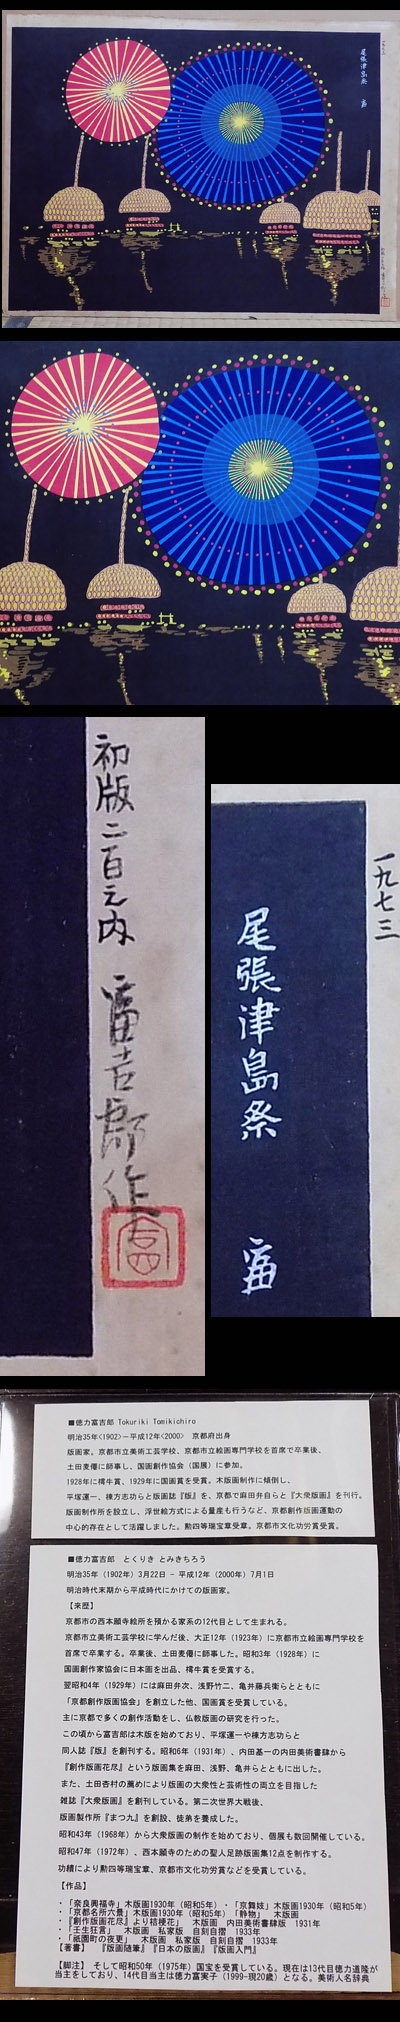 一九七三
尾張津島祭 富
初版二百之内 富吉郎作
一九七三
尾張津島祭 富
■徳力富吉郎 Tokuriki Tomikichiro
明治35年<1902>－平成12年<2000> 京都府出身
版画家。京都市立美術工芸学校、京都市立絵画専門学校を首席で卒業後、
土田麦僊に師事し、国画創作協会（国展）に参加。
1928年に樗牛賞、1929年に国画賞を受賞。木版画制作に傾倒し、
平塚運一、棟方志功らと版画誌『版』を、京都で麻田弁自らと『大衆版画』を刊行。
版画制作所を設立し、浮世絵方式による量産も行うなど、京都創作版画運動の
中心的存在として活躍しました。勲四等瑞宝章受章。京都市文化功労賞受賞。
■徳力富吉郎 とくりき とみきちろう
明治35年（1902年）3月22日 - 平成12年（2000年）7月1日
明治時代末期から平成時代にかけての版画家。
【来歴】
京都市の西本願寺絵所を預かる家系の12代目として生まれる。
京都市立美術工芸学校に学んだ後、大正12年（1923年）に京都市立絵画専門学校を
首席で卒業する。卒業後、土田麦僊に師事した。昭和3年（1928年）に
国画創作家協会に日本画を出品、樗牛賞を受賞する。
翌昭和4年（1929年）には麻田弁次、浅野竹二、亀井藤兵衛らとともに
「京都創作版画協会」を創立した他、国画賞を受賞している。
主に京都で多くの創作活動をし、仏教版画の研究を行った。
この頃から富吉郎は木版を始めており、平塚運一や棟方志功らと
同人誌『版』を創刊する。昭和6年（1931年）、内田基一の内田美術書肆から
『創作版画花尽』という版画集を麻田、浅野、亀井らとともに出した。
また、土田杏村の薦めにより版画の大衆性と芸術性の両立を目指した
雑誌『大衆版画』を創刊している。第二次世界大戦後、
版画製作所『まつ九』を創設、徒弟を養成した。
昭和43年（1968年）から大衆版画の制作を始めており、個展も数回開催している。
昭和47年（1972年）、西本願寺のための聖人足跡版画集12点を制作する。
功績により勲四等瑞宝章、京都市文化功労賞などを受賞している。
【作品】
・「奈良興福寺」木版画1930年（昭和5年）・「京舞妓」木版画1930年（昭和5年）
・「京都名所六景」木版画1930年（昭和5年）・「静物」 木版画
・『創作版画花尽』より桔梗花」 木版画 内田美術書肆版 1931年
・「壬生狂言」 木版画 私家版 自刻自摺 1933年
・「祇園町の夜更」 木版画 私家版 自刻自摺 1933年
【著書】 『版画随筆』『日本の版画』『版画入門』
【脚注】 そして昭和50年（1975年）国宝を受賞している。現在は13代目徳力道隆が
当主をしており、14代目当主は徳力富実子（1999-現20歳）となる。美術人名辞典